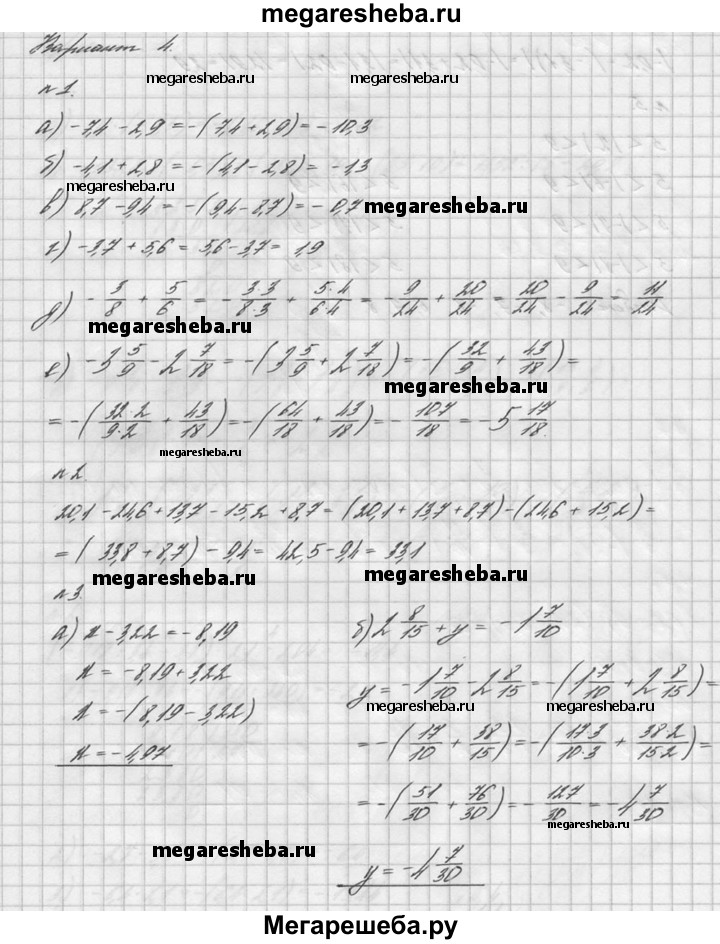 megaresheba.ru
Вариант 4.
megaresheba.ru megaresheba.ru
n 1.
а) -7,4 - 2,9 = -(7,4 + 2,9) = -10,3
б) -4,1 + 2,8 = -(4,1 - 2,8) = -1,3
megaresheba.ru
в) 8,7 - 9,4 = -(9,4 - 8,7) = -0,7 megaresheba.ru
г) -3,7 + 5,6 = 5,6 - 3,7 = 1,9
д) - 3/8 + 5/6 = - 3·3/8·3 + 5·4/6·4 = - 9/24 + 20/24 = 20/24 - 9/24 = 11/24
megaresheba.ru
е) -3 5/9 - 2 7/18 = -(3 5/9 + 2 7/18) = -(32/9 + 43/18) =
megaresheba.ru
= -(32·2/9·2 + 43/18) = -(64/18 + 43/18) = - 107/18 = -5 17/18.
megaresheba.ru
n 2.
20,1 - 24,6 + 13,7 - 15,2 + 8,7 = (20,1 + 13,7 + 8,7) - (24,6 + 15,2) =
= (33,8 + 8,7) - 9,4 = 42,5 - 9,4 = 33,1
megaresheba.ru megaresheba.ru
n 3.
а) x - 3,22 = -8,19
x = -8,19 + 3,22
x = -(8,19 - 3,22)
x = -4,97
б) 2 8/15 + y = -1 7/10
y = -1 7/10 - 2 8/15 = -(1 7/10 + 2 8/15) =
megaresheba.ru megaresheba.ru
= -(17/10 + 38/15) = -(17·3/10·3 + 38·2/15·2) =
= -(51/30 + 76/30) = - 127/30 = -4 7/30
megaresheba.ru
megaresheba.ru
y = -4 7/30
Мегарешеба.ру